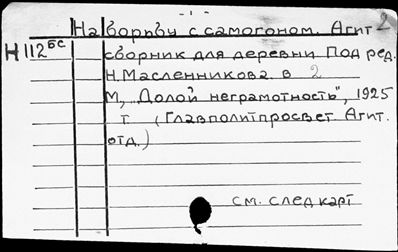 На борьбу с самогоном. Агит 2
Н 112 бс сборник для деревни Под ред.
Н. Масленникова. в 2
М, "Долой неграмотность", 1925
г (Главполитпросвет Агит.
отд.)
см. след карт